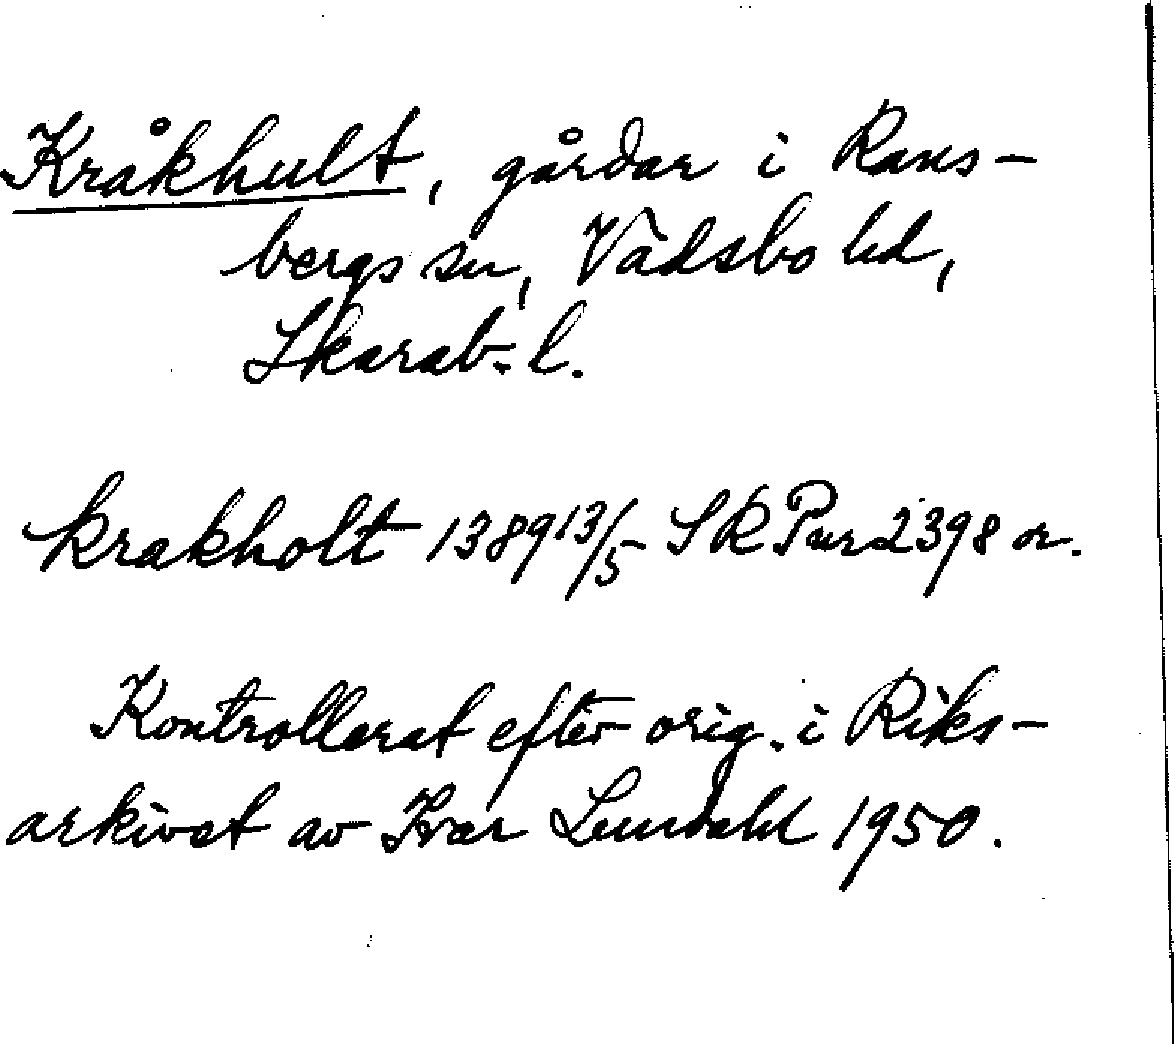 Kråkhult, gårdar i Rans-
bergs sn, Vadsbo hd,
Skarab. l.
krakholt 1389 13/5 SRPur 2398 or.
Kontrollerat efter orig. i Riks-
arkivet av Ivar Lundahl 1950.